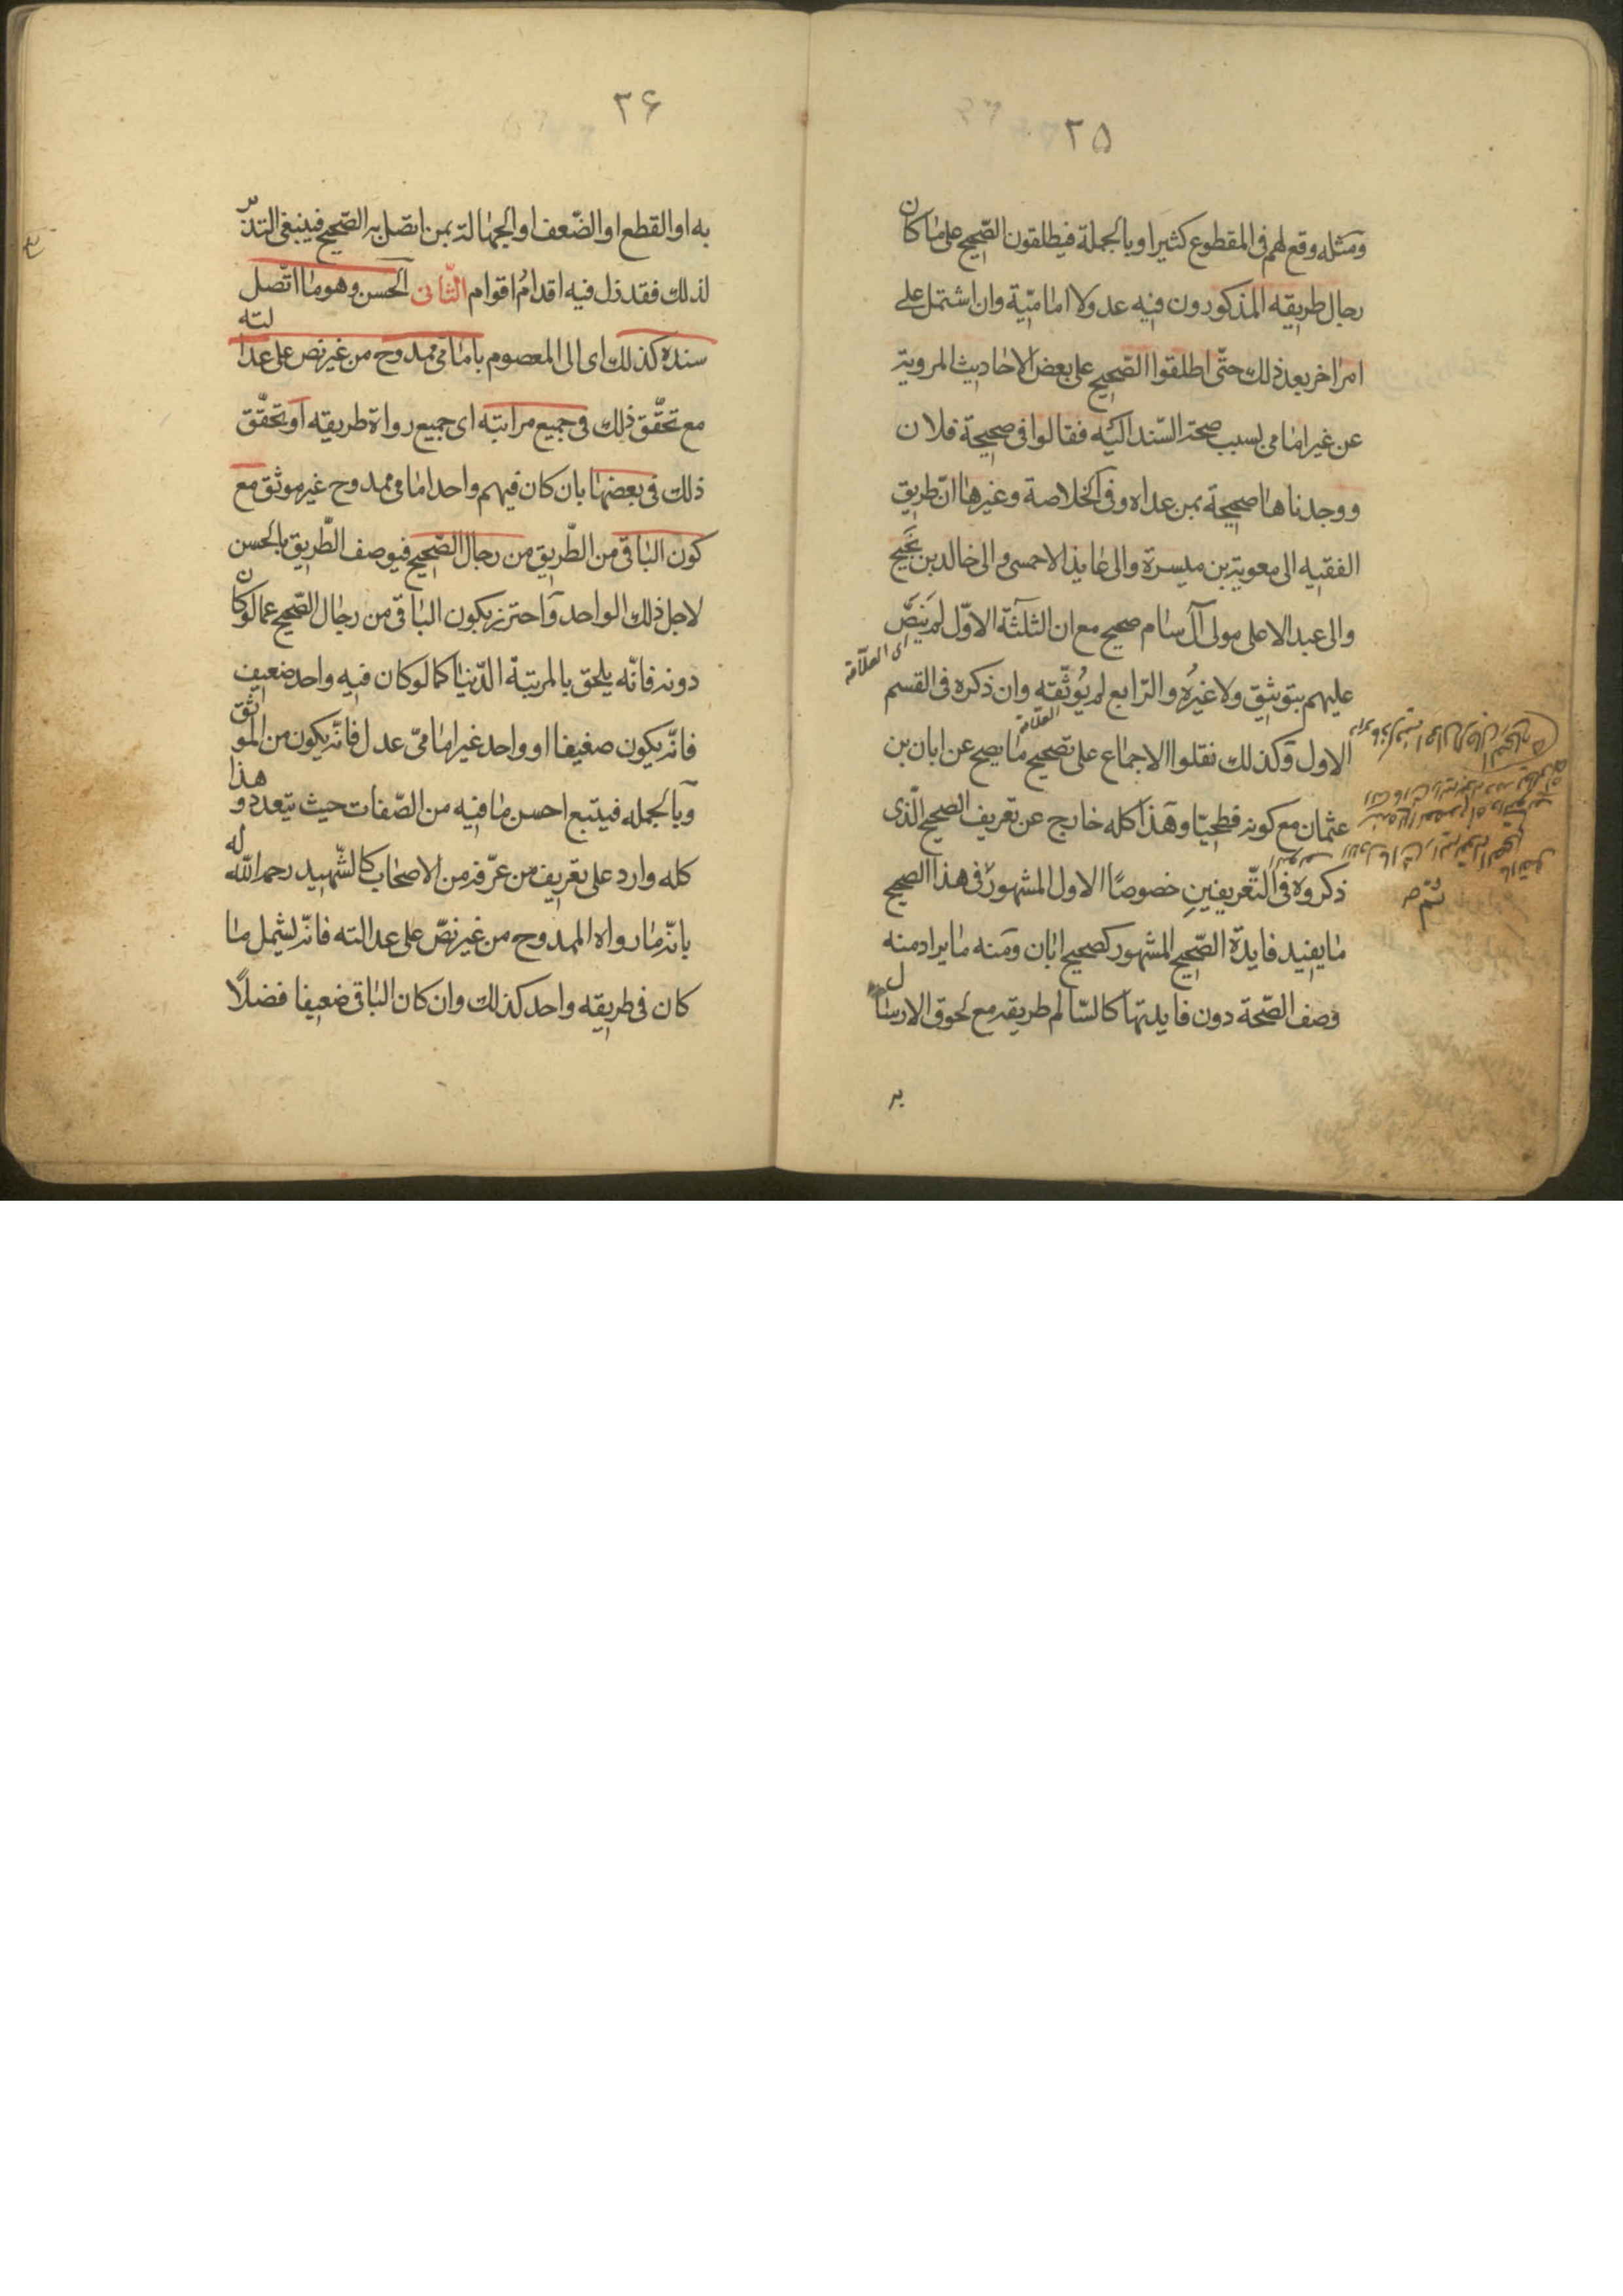 ۲۵
ومثله وقع لهم فى المقطوع كثيرا وبالجملة فيطلقون الصّحيح على ما كان
رجال طريقه المذكورون فيه عدولا اماميّة وان اشتمل على
امر اخر بعد ذلك حتّى اطلقوا الصّحيح على بعض الاحاديث المروية
عن غير امامى بسبب صحة السّند اليه فقالوا فى صحيحة فلان
ووجدناها صحيحة بمن عداه وفى الخلاصة وغيرها انّ طريق
الفقيه الى معوية بن ميسرة والى عايذ الاحمسى والى خالد بن نجيح
والى عبد الاعلى مولى آل سام صحيح مع ان الثلثة الاوّل لم ينصّ
اى العلّامة
عليهم بتوثيق ولا غيره والرّابع لم يوثّقه وان ذكره فى القسم
العلّامة
الاول وكذلك نقلوا الاجماع على تصحيح ما يصح عن ابان بن
عثمان مع كونه فطحيّا وهذا كله خارج عن تعريف الصحيح الّذى
ذكروه فى التّعريفين خصوصًا الاول المشهور فى هذا الصحيح
ما يفيد فايدة الصّحيح المشهور كصحيح ابان ومنه ما يراد منه
وصف الصّحة دون فايدتها كالسّالم طريقه مع لحوق الارسال
به
۲۶
به او القطع او الضّعف او الجهالة بمن اتصل به الصّحيح فينبغى التدبّر
لذلك فقد زل فيه اقدام اقوام الثّانى الحسن وهو ما اتّصل
سنده كذلك اى الى المعصوم بامامى ممدوح من غير نص على عدالته
مع تحقّق ذلك فى جميع مراتبه اى جميع رواة طريقه او تحقّق
ذلك فى بعضها بان كان فيهم واحد امامى ممدوح غير موثق مع
كون الباقى من الطّريق من رجال الصّحيح فيوصف الطّريق بالحسن
لاجل ذلك الواحد واحترز بكون الباقى من رجال الصّحيح عما لو كان
دونه فانّه يلحق بالمرتبة الدّنيا كما لو كان فيه واحد ضعيف
فانّه يكون ضعيفا او واحد غير امامىّ عدل فانّه يكون من الموثق
وبالجمله فيتبع احسن ما فيه من الصّفات حيث يتعدد وهذا
كله وارد على تعريف من عرّفه من الاصحاب كالشّهيد رحمه اللّه
بانّه ما رواه الممدوح من غير نصّ على عدالته فانّه لشمل ما
كان فى طريقه واحد كذلك وان كان الباقى ضعيفا فضلًا